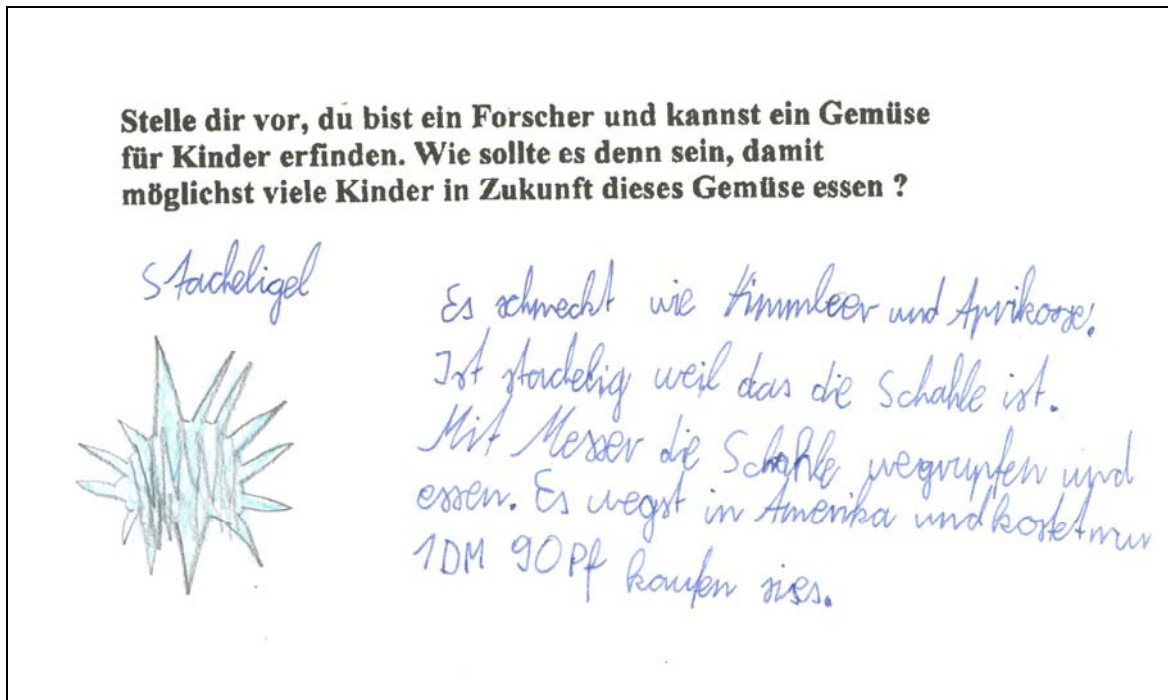 Stelle dir vor, du bist ein Forscher und kannst ein Gemüse
für Kinder erfinden. Wie sollte es denn sein, damit
möglichst viele Kinder in Zukunft dieses Gemüse essen ?
Stacheligel
Es schmeckt wie Himmbeer und Aprikose.
Ist stachelig weil das die Schahle ist.
Mit Messer die Schahle wegrupfen und
essen. Es wegst in Amerika und kostet nur
1DM 90Pf kaufen sies.